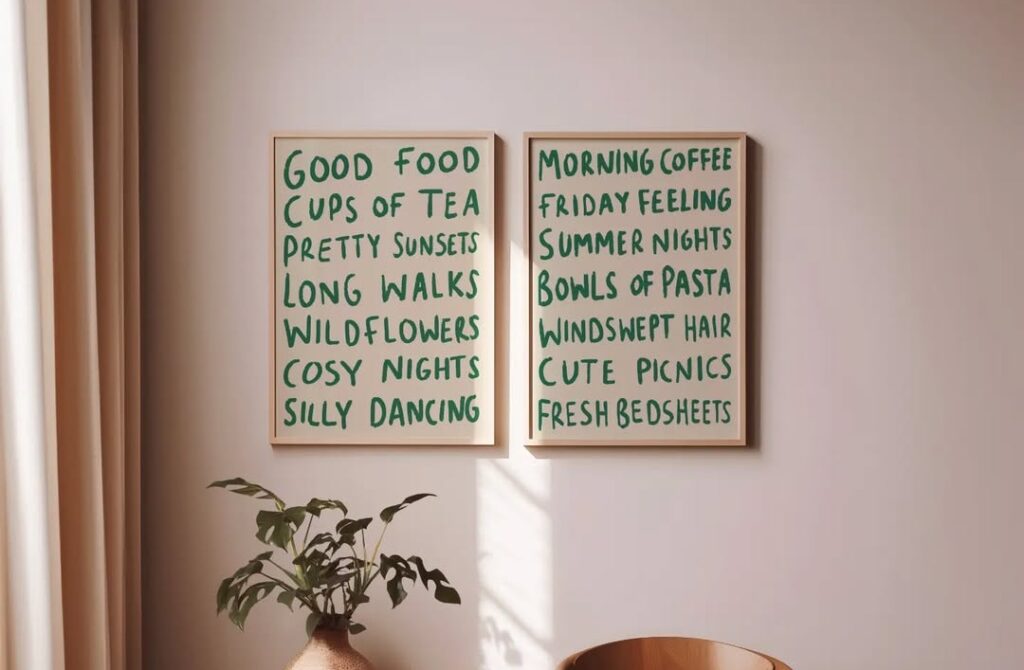 GOOD FOOD
CUPS OF TEA
PRETTY SUNSETS
LONG WALKS
WILDFLOWERS
COSY NIGHTS
SILLY DANCING
MORNING COFFEE
FRIDAY FEELING
SUMMER NIGHTS
BOWLS OF PASTA
WINDSWEPT HAIR
CUTE PICNICS
FRESH BEDSHEETS